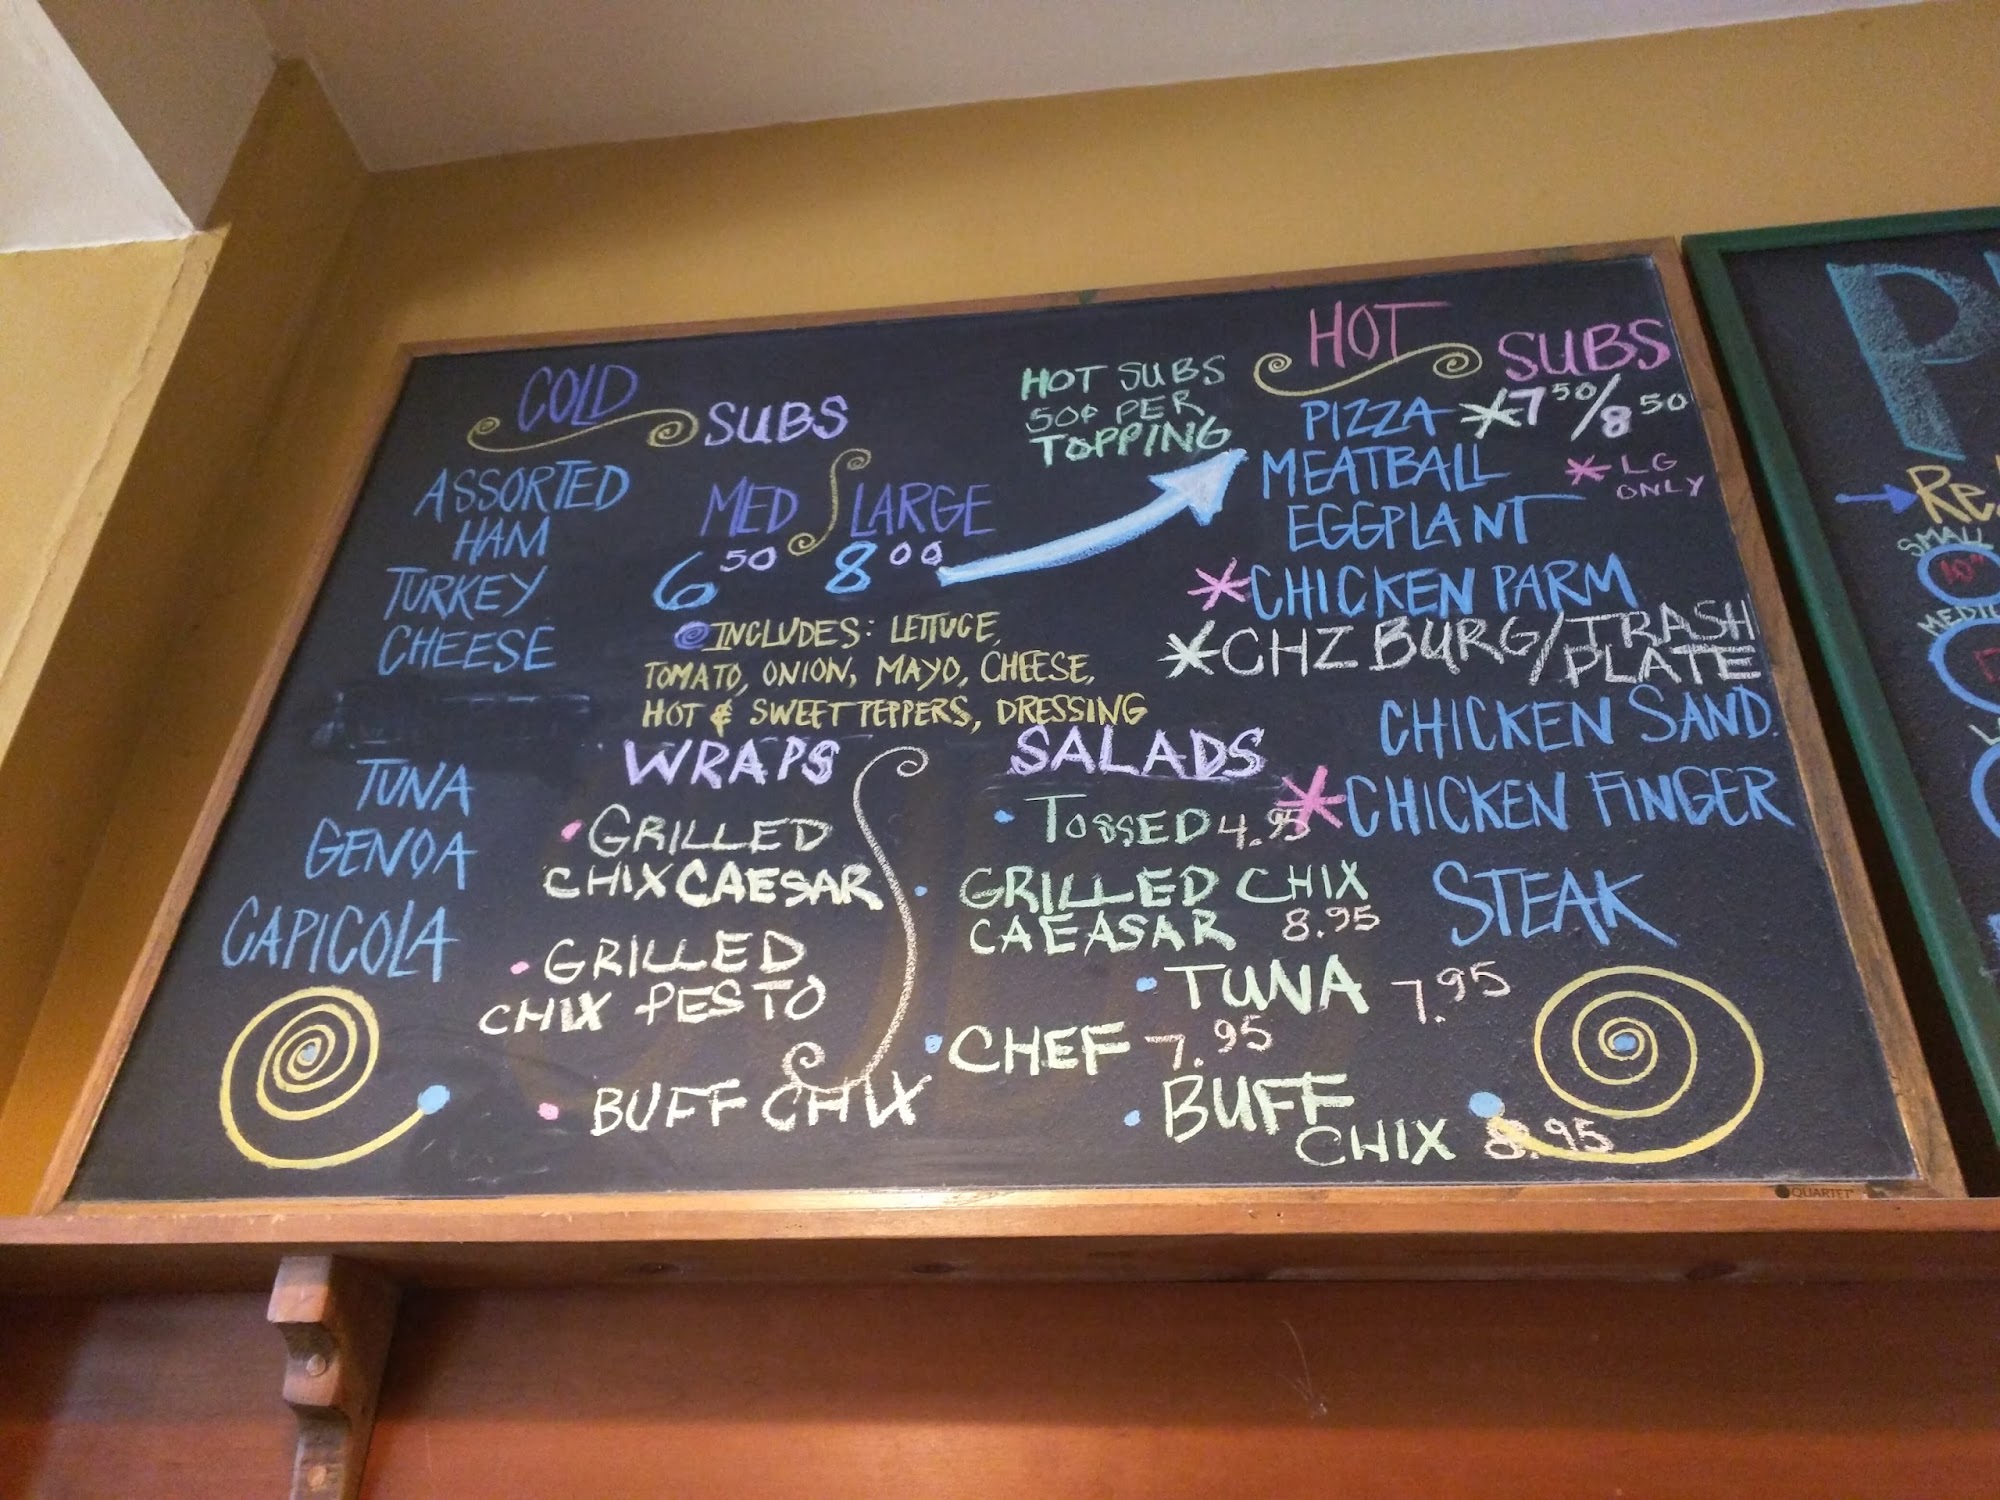 COLD SUBS
ASSORTED
HAM
TURKEY
CHEESE
TUNA
GENOA
CAPICOLA
MED LARGE
6 50 8 00
INCLUDES: LETTUCE,
TOMATO, ONION, MAYO, CHEESE,
HOT & SWEET PEPPERS, DRESSING
HOT SUBS
50¢ PER
TOPPING
HOT SUBS
PIZZA *7 50/8 50
MEATBALL * LG
ONLY
EGGPLANT
*CHICKEN PARM
*CHZ BURG/TRASH
PLATE
CHICKEN SAND.
*CHICKEN FINGER
STEAK
WRAPS
• GRILLED
CHIX CAESAR
• GRILLED
CHIX PESTO
• BUFF CHIX
SALADS
• TOSSED 4.95
• GRILLED CHIX
CAEASAR 8.95
• TUNA 7.95
• CHEF 7.95
• BUFF
CHIX 8.95
QUARTET
SMALL
10"